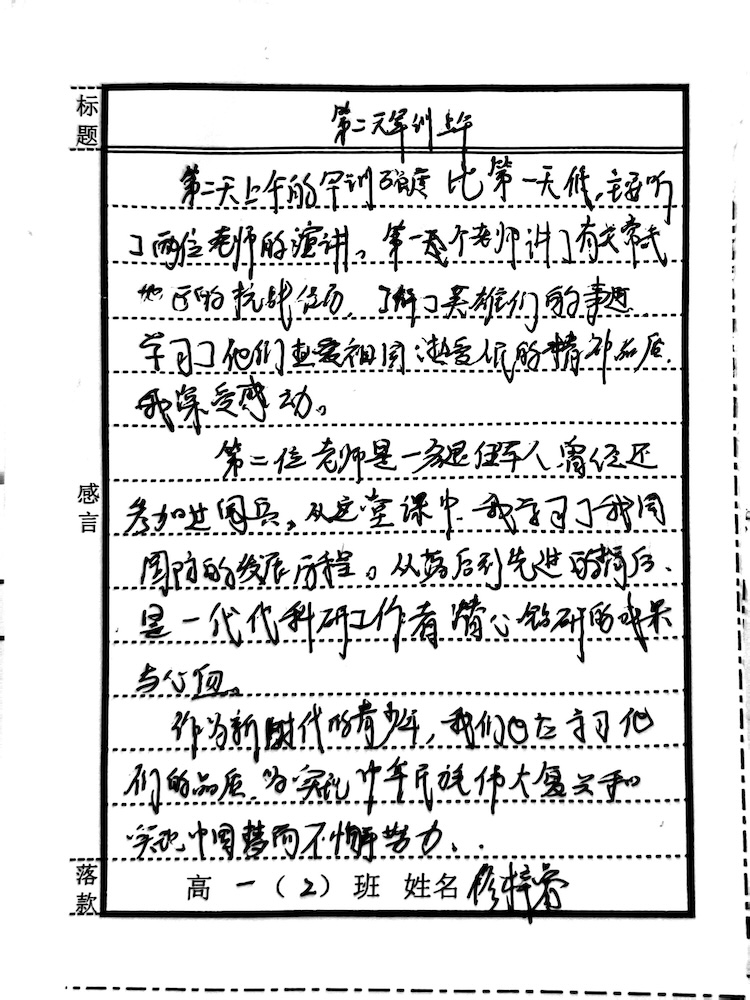 标题
第二天军训上午
第二天上午的军训强度比第一天低,主要听
了两位老师的演讲。第一个老师讲了有关常
地区的抗战经历,了解了英雄们的事迹,
学习了他们热爱祖国,热爱人民的精神品质,
我深受感动。
第二位老师是一名退伍军人,曾经还
参加过阅兵。从这堂课中,我学习了我国
国防的发展历程。从落后到先进的背后,
是一代代科研工作者潜心钻研的成果
与心血。
感言
作为新时代的青少年,我们也应学习他
们的品质,为实现中华民族伟大复兴和
实现中国梦而不懈努力。
落款
高一(2)班 姓名 修梓